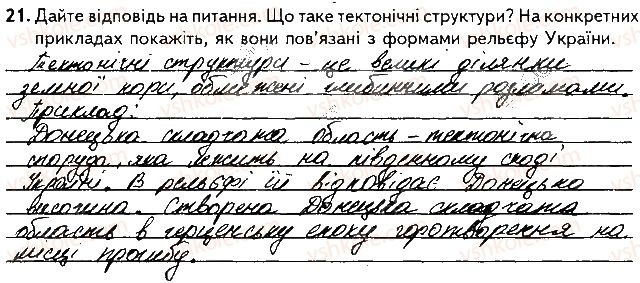 21. Дайте відповідь на питання. Що таке тектонічні структури? На конкретних
прикладах покажіть, як вони пов'язані з формами рельєфу України.
Тектонічні структури – це великі ділянки
земної кори, обмежені глибинними розламами.
Приклад:
Донецька складчаста область – тектонічна
споруда, яка лежить на південному сході
України. В рельєфі їй відповідає Донецька
височина. Створена Донецька складчата
область в герцинську епоху горотворення на
місці прогибу.